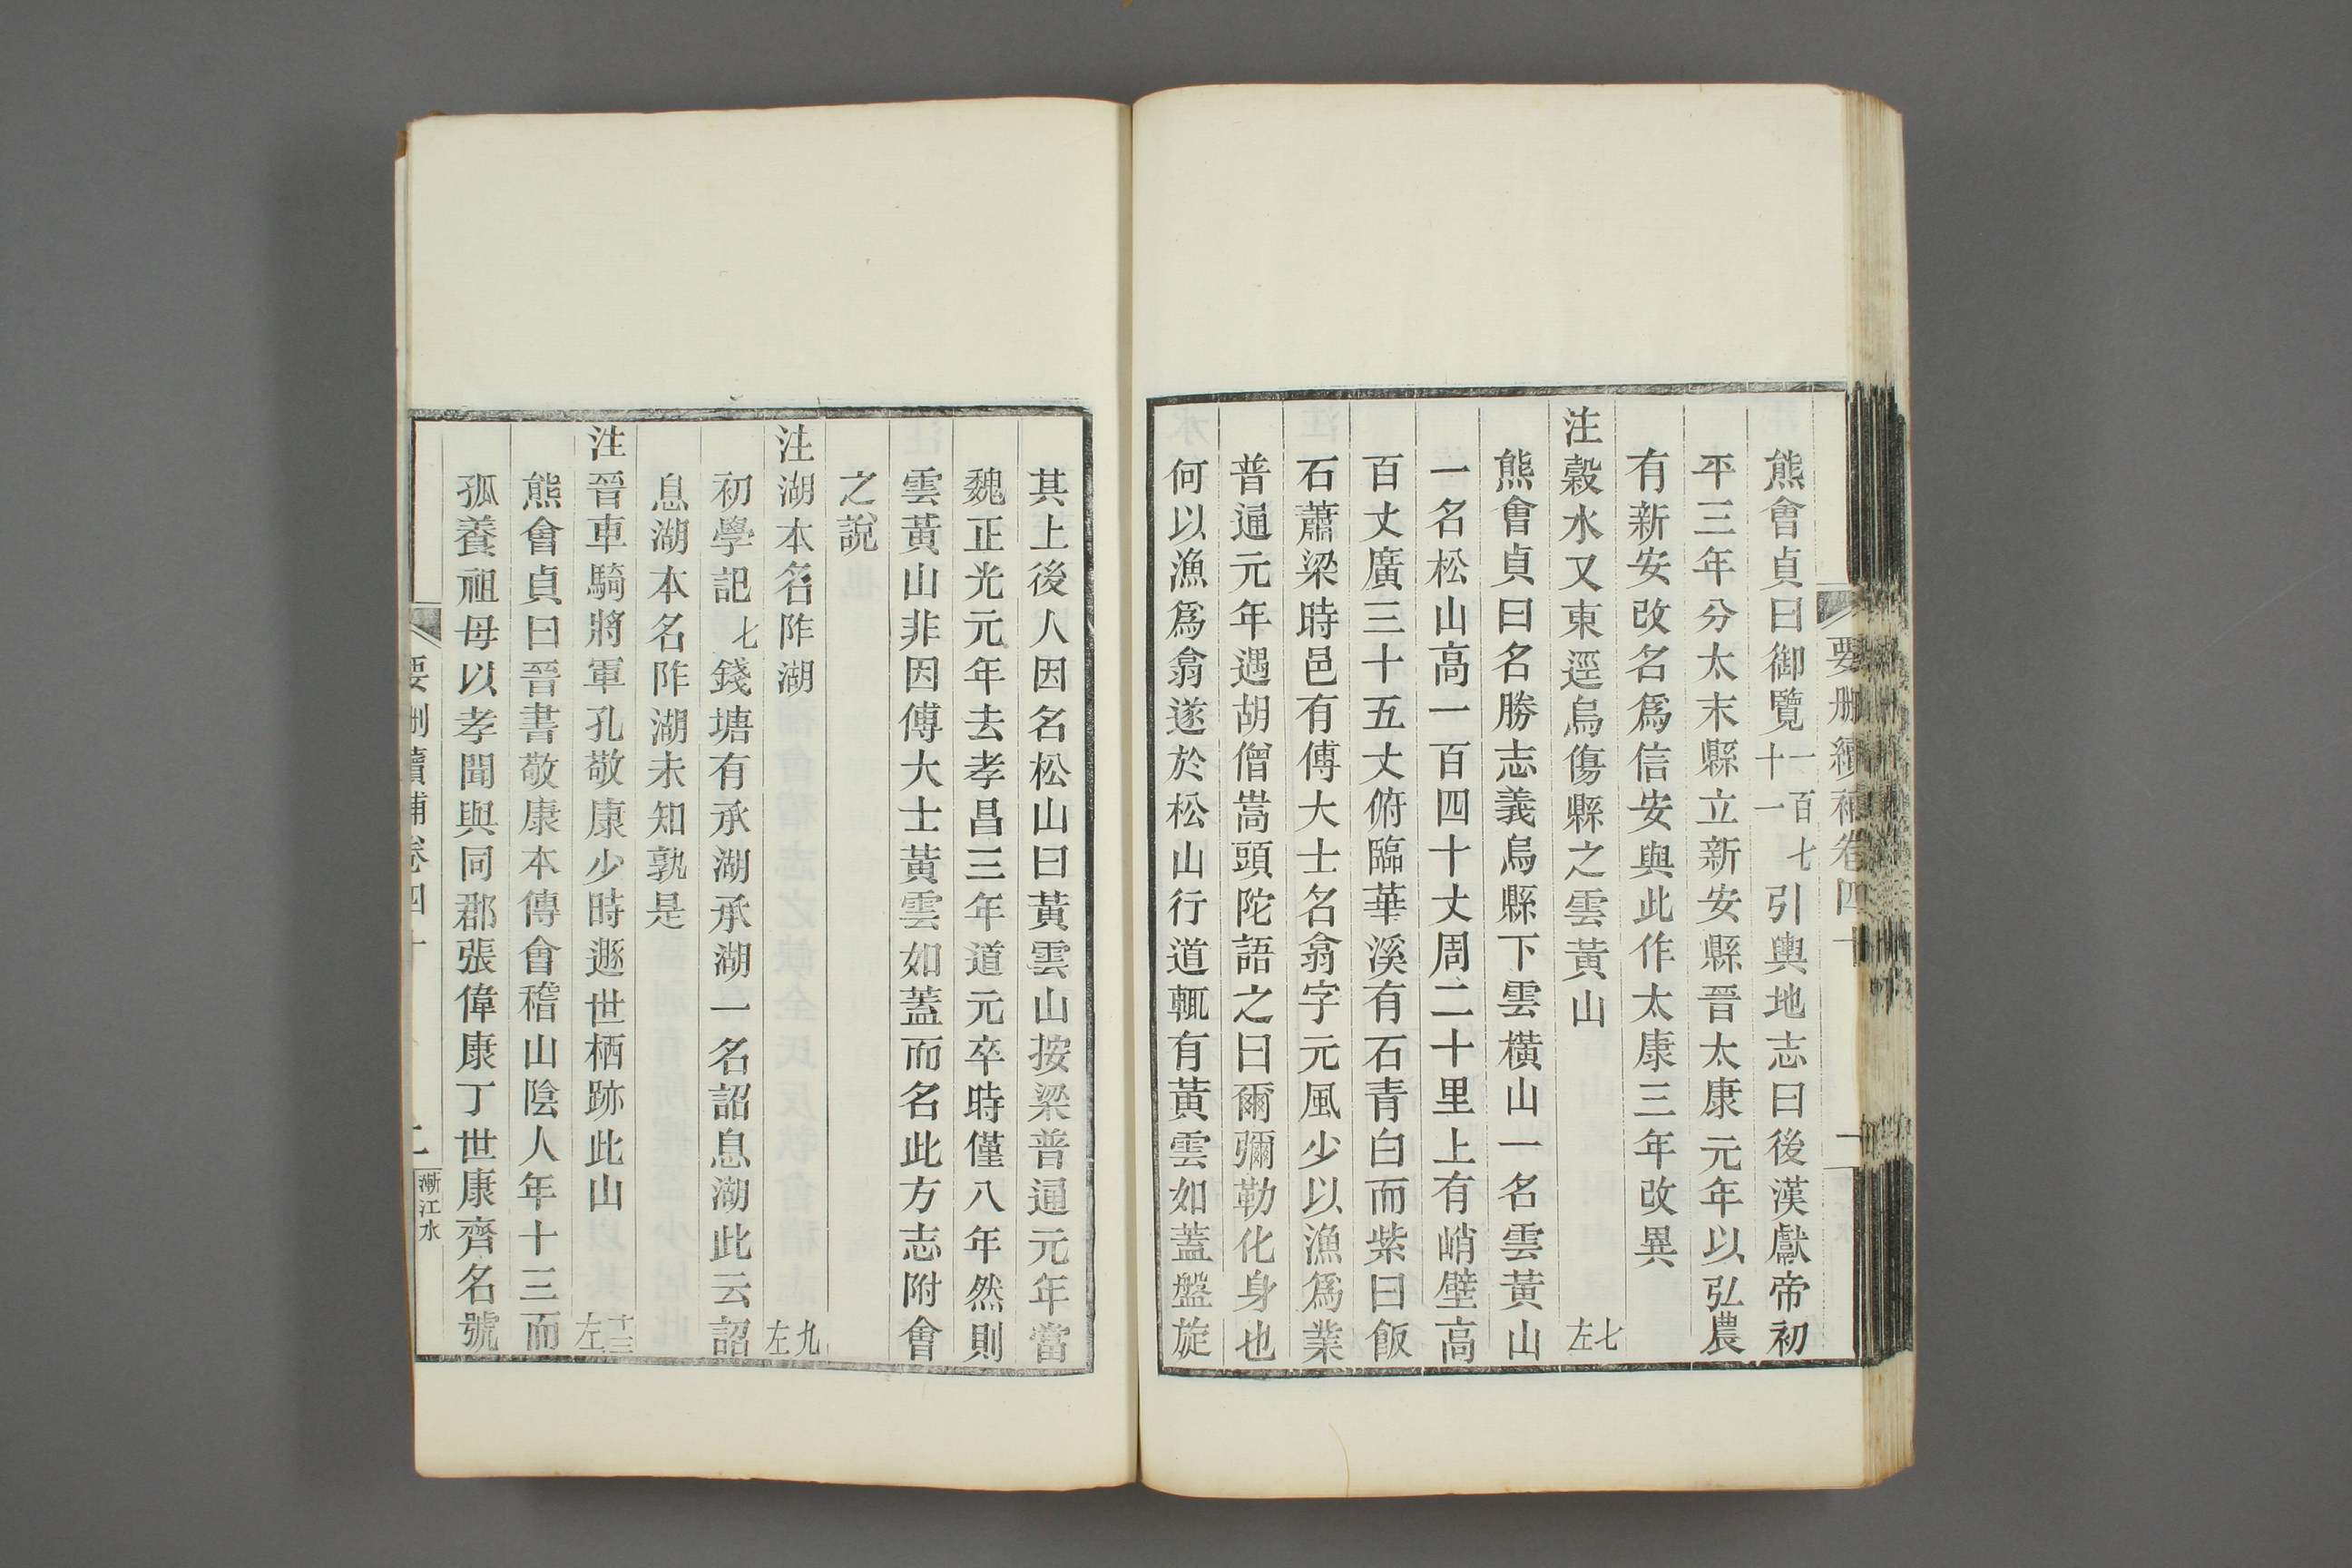 要刪續補卷四十
熊會貞曰御覽一百七十一引輿地志曰後漢獻帝初
平三年分太末縣立新安縣晉太康元年以弘農
有新安改名爲信安與此作太康三年改異
注穀水又東逕烏傷縣之雲黃山 七左
熊會貞曰名勝志義烏縣下雲橫山一名雲黃山
一名松山高一百四十丈周二十里上有峭壁高
百丈廣三十五丈俯臨華溪有石青白而紫曰飯
石蕭梁時邑有傅大士名翕字元風少以漁爲業
普通元年遇胡僧嵩頭陀語之曰爾彌勒化身也
何以漁爲翕遂於松山行道輒有黃雲如蓋盤旋
其上後人因名松山曰黃雲山按梁普通元年當
魏正光元年去孝昌三年道元卒時僅八年然則
雲黃山非因傅大士黃雲如蓋而名此方志附會
之說
注湖本名阼湖 九左
初學記七錢塘有承湖承湖一名詔息湖此云詔
息湖本名阼湖未知孰是
注晉車騎將軍孔敬康少時遯世栖跡此山 十三左
熊會貞曰晉書敬康本傳會稽山陰人年十三而
孤養祖母以孝聞與同郡張偉康丁世康齊名號
要刪續補卷四十 二 漸江水